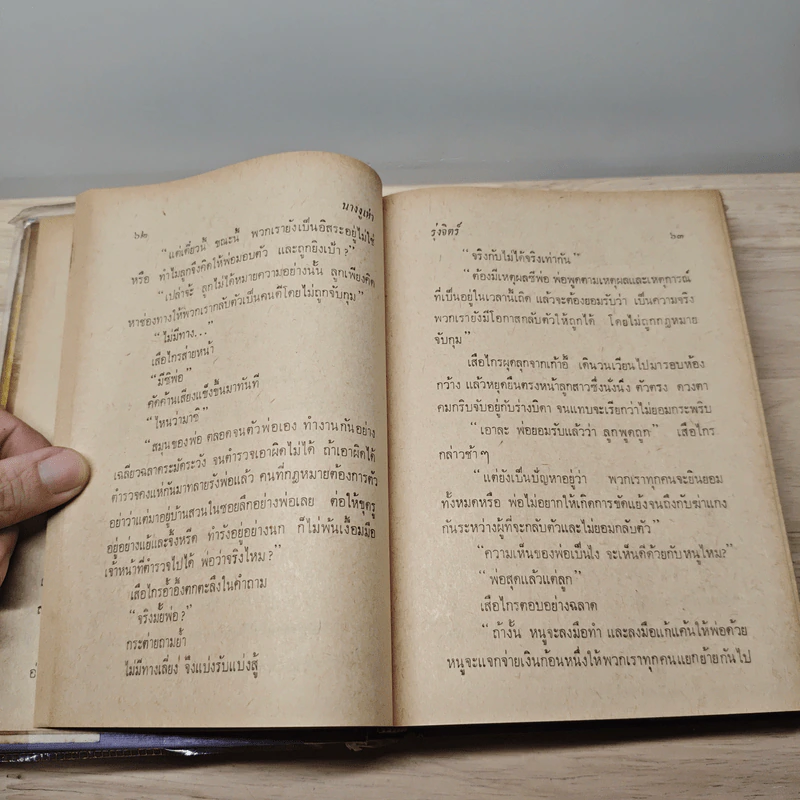 ๖๒
นางงูเห่า
“แต่เดี๋ยวนี้ ขณะนี้ พวกเรายังเป็นอิสระอยู่ไม่ใช่
หรือ ทำไมลูกจึงคิดให้พ่อมอบตัว และถูกยิงเป้า?”
“เปล่าจ้ะ ลูกไม่ได้หมายความอย่างนั้น ลูกเพียงคิด
หาช่องทางให้พวกเรากลับตัวเป็นคนดีโดยไม่ถูกจับกุม”
“ไม่มีทาง...”
เสือไกรส่ายหน้า
“มีซิพ่อ”
คัดค้านเสียงแข็งขันมาทันที
“ไหนว่ามาซิ”
“สมุนของพ่อ ตลอดจนตัวพ่อเอง ทำงานกันอย่าง
เฉลียวฉลาดระมัดระวัง จนตำรวจเอาผิดไม่ได้ ถ้าเอาผิดได้
ตำรวจคงแห่กันมาทลายรังพ่อแล้ว คนที่กฎหมายต้องการตัว
อย่าว่าแต่มาอยู่บ้านสวนในซอยลึกอย่างพ่อเลย ต่อให้ขุดรู
อยู่อย่างแย้และจิ้งหรีด ทำรังอยู่อย่างนก ก็ไม่พ้นเงื้อมมือ
เจ้าหน้าที่ตำรวจไปได้ พ่อว่าจริงไหม?”
เสือไกรอ้ำอึ้งตกตะลึงในคำถาม
“จริงมั้ยพ่อ?”
กระต่ายถามย้ำ
ไม่มีทางเลี่ยง จึงแบ่งรับแบ่งสู้
รุ่งจิตร์
๖๓
“จริงกับไม่ได้จริงเท่ากัน”
“ต้องมีเหตุผลซีพ่อ พ่อพูดตามเหตุผลและเหตุการณ์
ที่เป็นอยู่ในเวลานี้เถิด แล้วจะต้องยอมรับว่า เป็นความจริง
พวกเรายังมีโอกาสกลับตัวให้ถูกได้ โดยไม่ถูกกฎหมาย
จับกุม”
เสือไกรผุดลุกจากเก้าอี้ เดินวนเวียนไปมารอบห้อง
กว้าง แล้วหยุดยืนตรงหน้าลูกสาวซึ่งนั่งนิ่ง ตัวตรง ดวงตา
คมกริบจับอยู่กับร่างบิดา จนแทบจะเรียกว่าไม่ยอมกระพริบ
“เอาละ พ่อยอมรับแล้วว่า ลูกพูดถูก” เสือไกร
กล่าวช้า ๆ
“แต่ยังเป็นปัญหาอยู่ว่า พวกเราทุกคนจะยินยอม
ทั้งหมดหรือ พ่อไม่อยากให้เกิดการขัดแย้งจนถึงกับฆ่าแกง
กันระหว่างผู้ที่จะกลับตัวและไม่ยอมกลับตัว”
“ความเห็นของพ่อเป็นไง จะเห็นดีด้วยกับหนูไหม?”
“พ่อสุดแล้วแต่ลูก”
เสือไกรตอบอย่างฉลาด
“ถ้างั้น หนูจะลงมือทำ และลงมือแก้แค้นให้พ่อด้วย
หนูจะแจกจ่ายเงินก้อนหนึ่งให้พวกเราทุกคนแยกย้ายกันไป